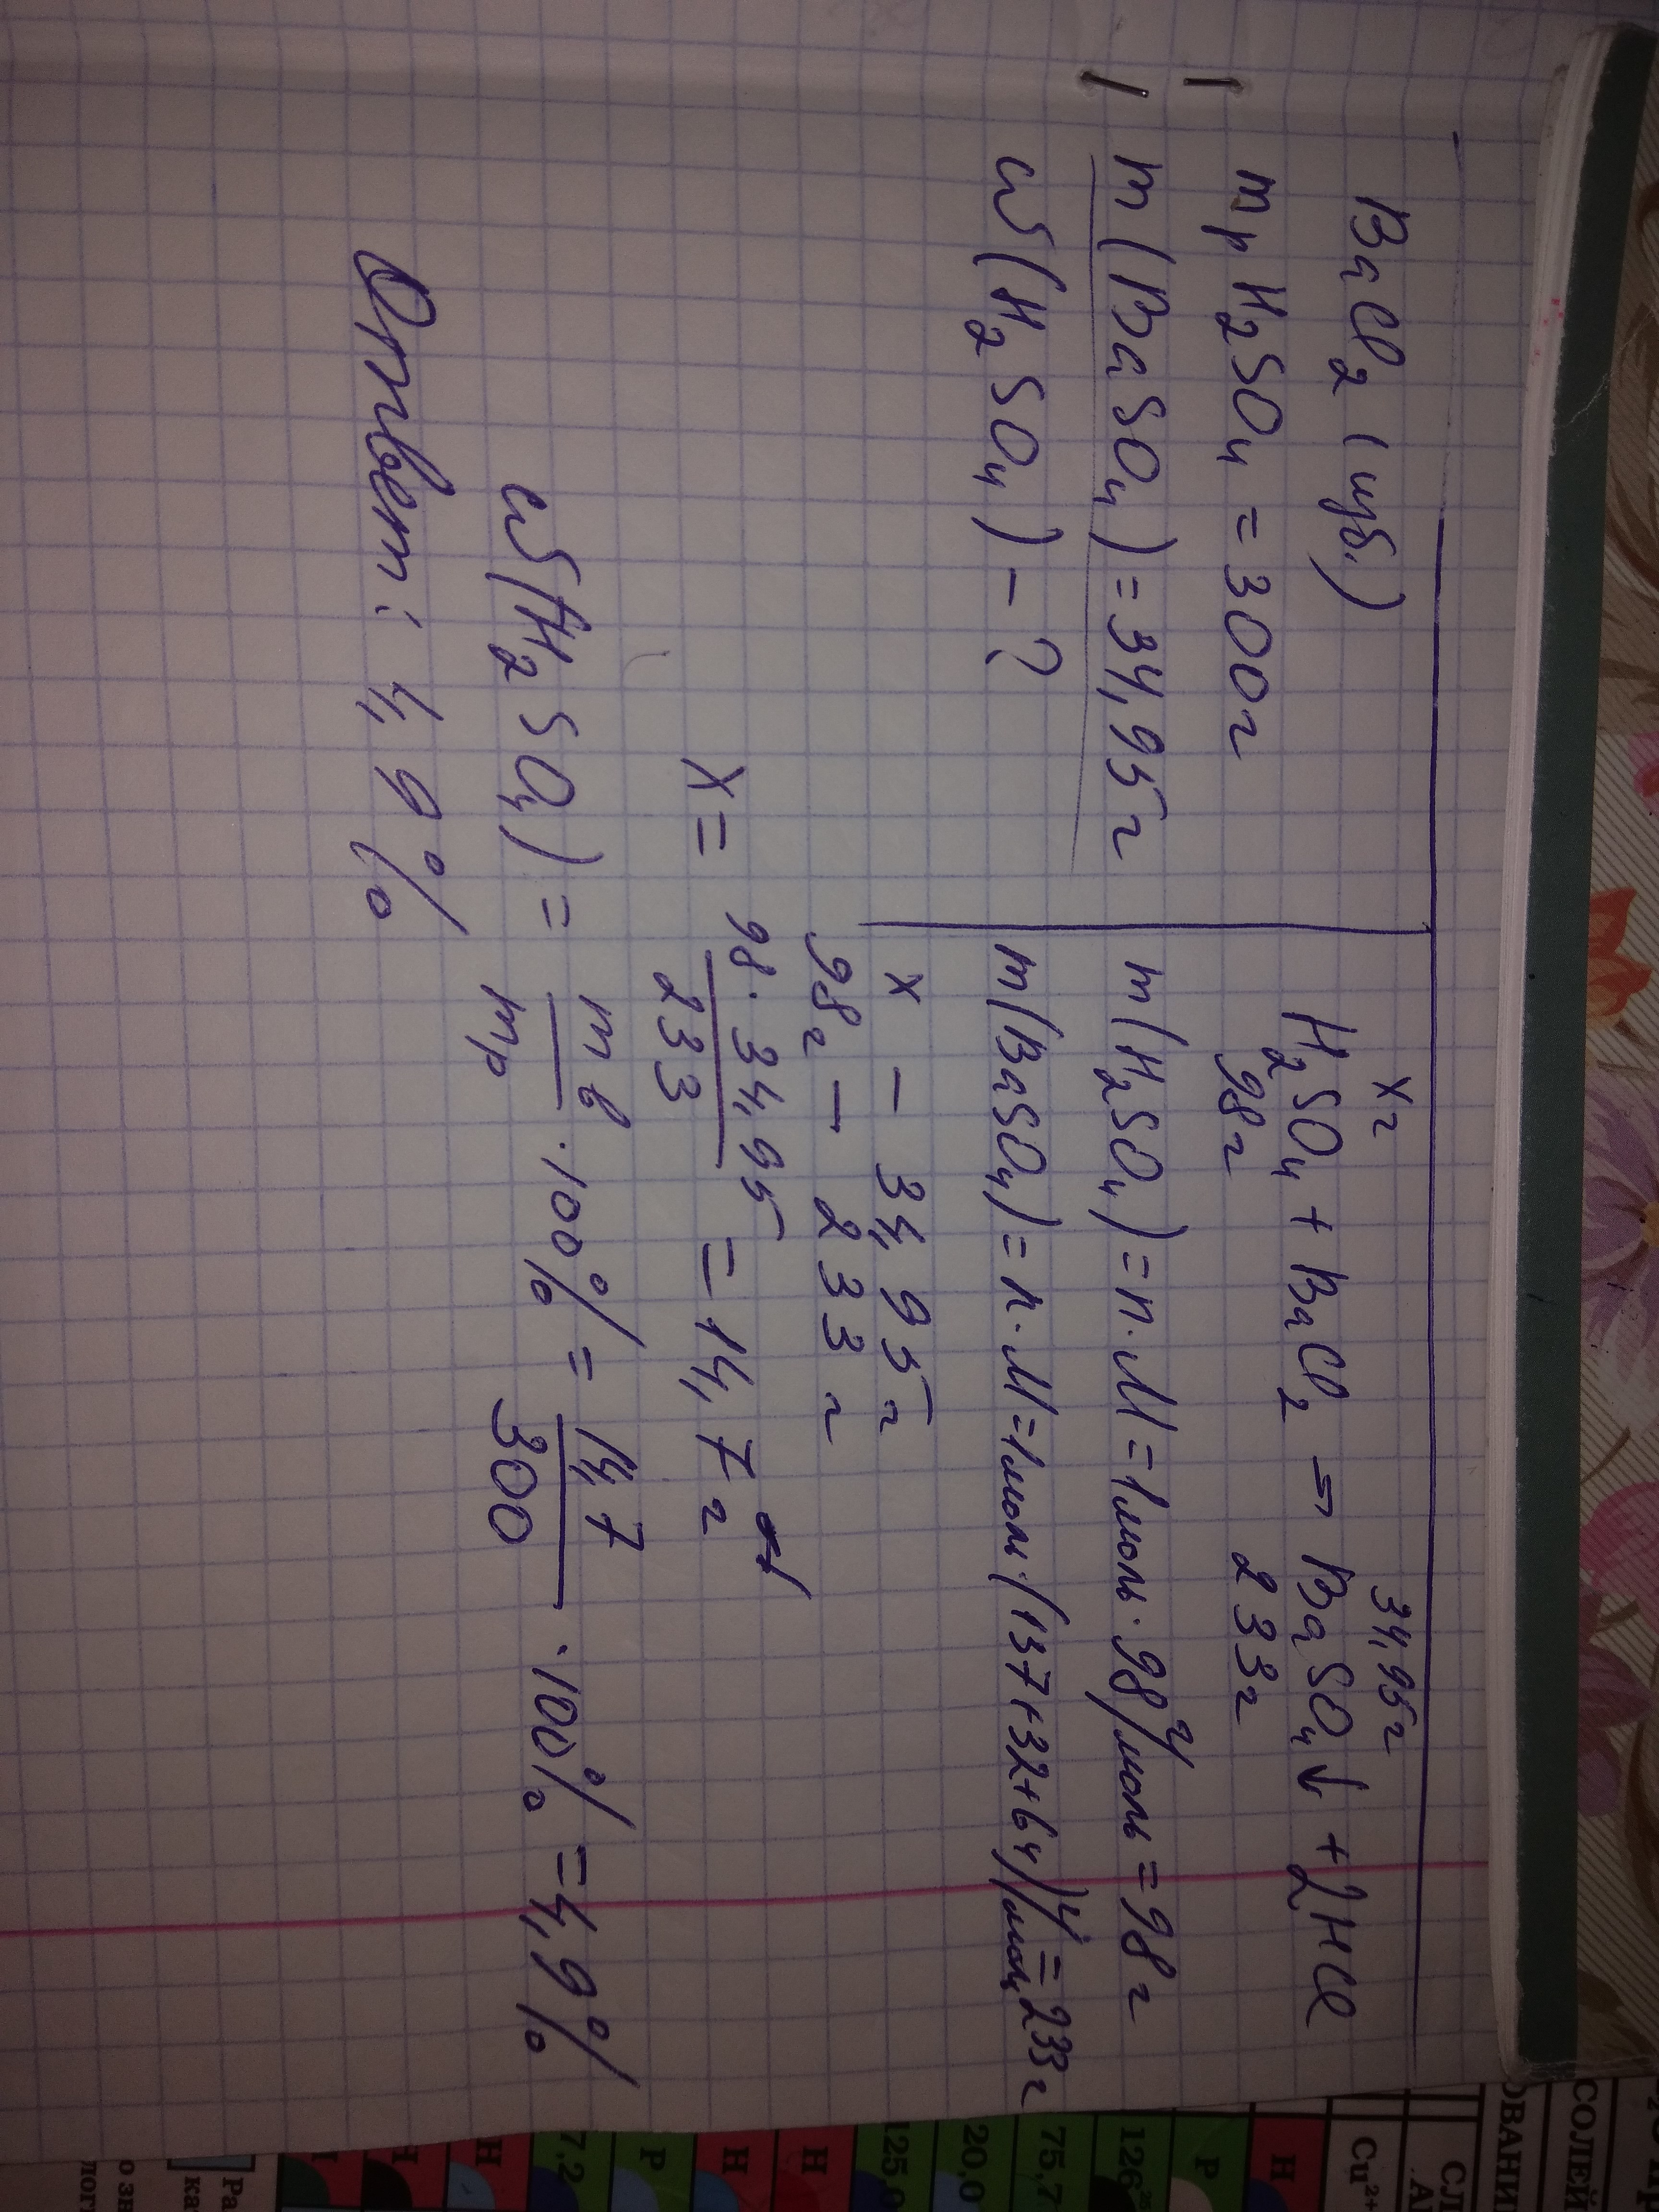 BaCl₂ (изб.)
mр H₂SO₄ = 300г
m(BaSO₄) = 34,95г
ω(H₂SO₄) - ?
xг 34,95г
H₂SO₄ + BaCl₂ = BaSO₄↓ + 2HCl
98г 233г
m(H₂SO₄) = n·M = 1моль·98г/моль = 98г
m(BaSO₄) = n·M = 1моль·(137+32+64)г/моль = 233г
x - 34,95г
98г - 233г
x = 98·34,95/233 = 14,7г
ω(H₂SO₄) = mв/mр ·100% = 14,7/300 ·100% = 4,9%
Ответ: 4,9%
СОЛЕЙ
ОВАНИ
Cu²⁺
Н
Р
126
75,7
20,0
125,0
Н
Н
Р
7,2
Н
Н
Ра
ка
о зн
логи